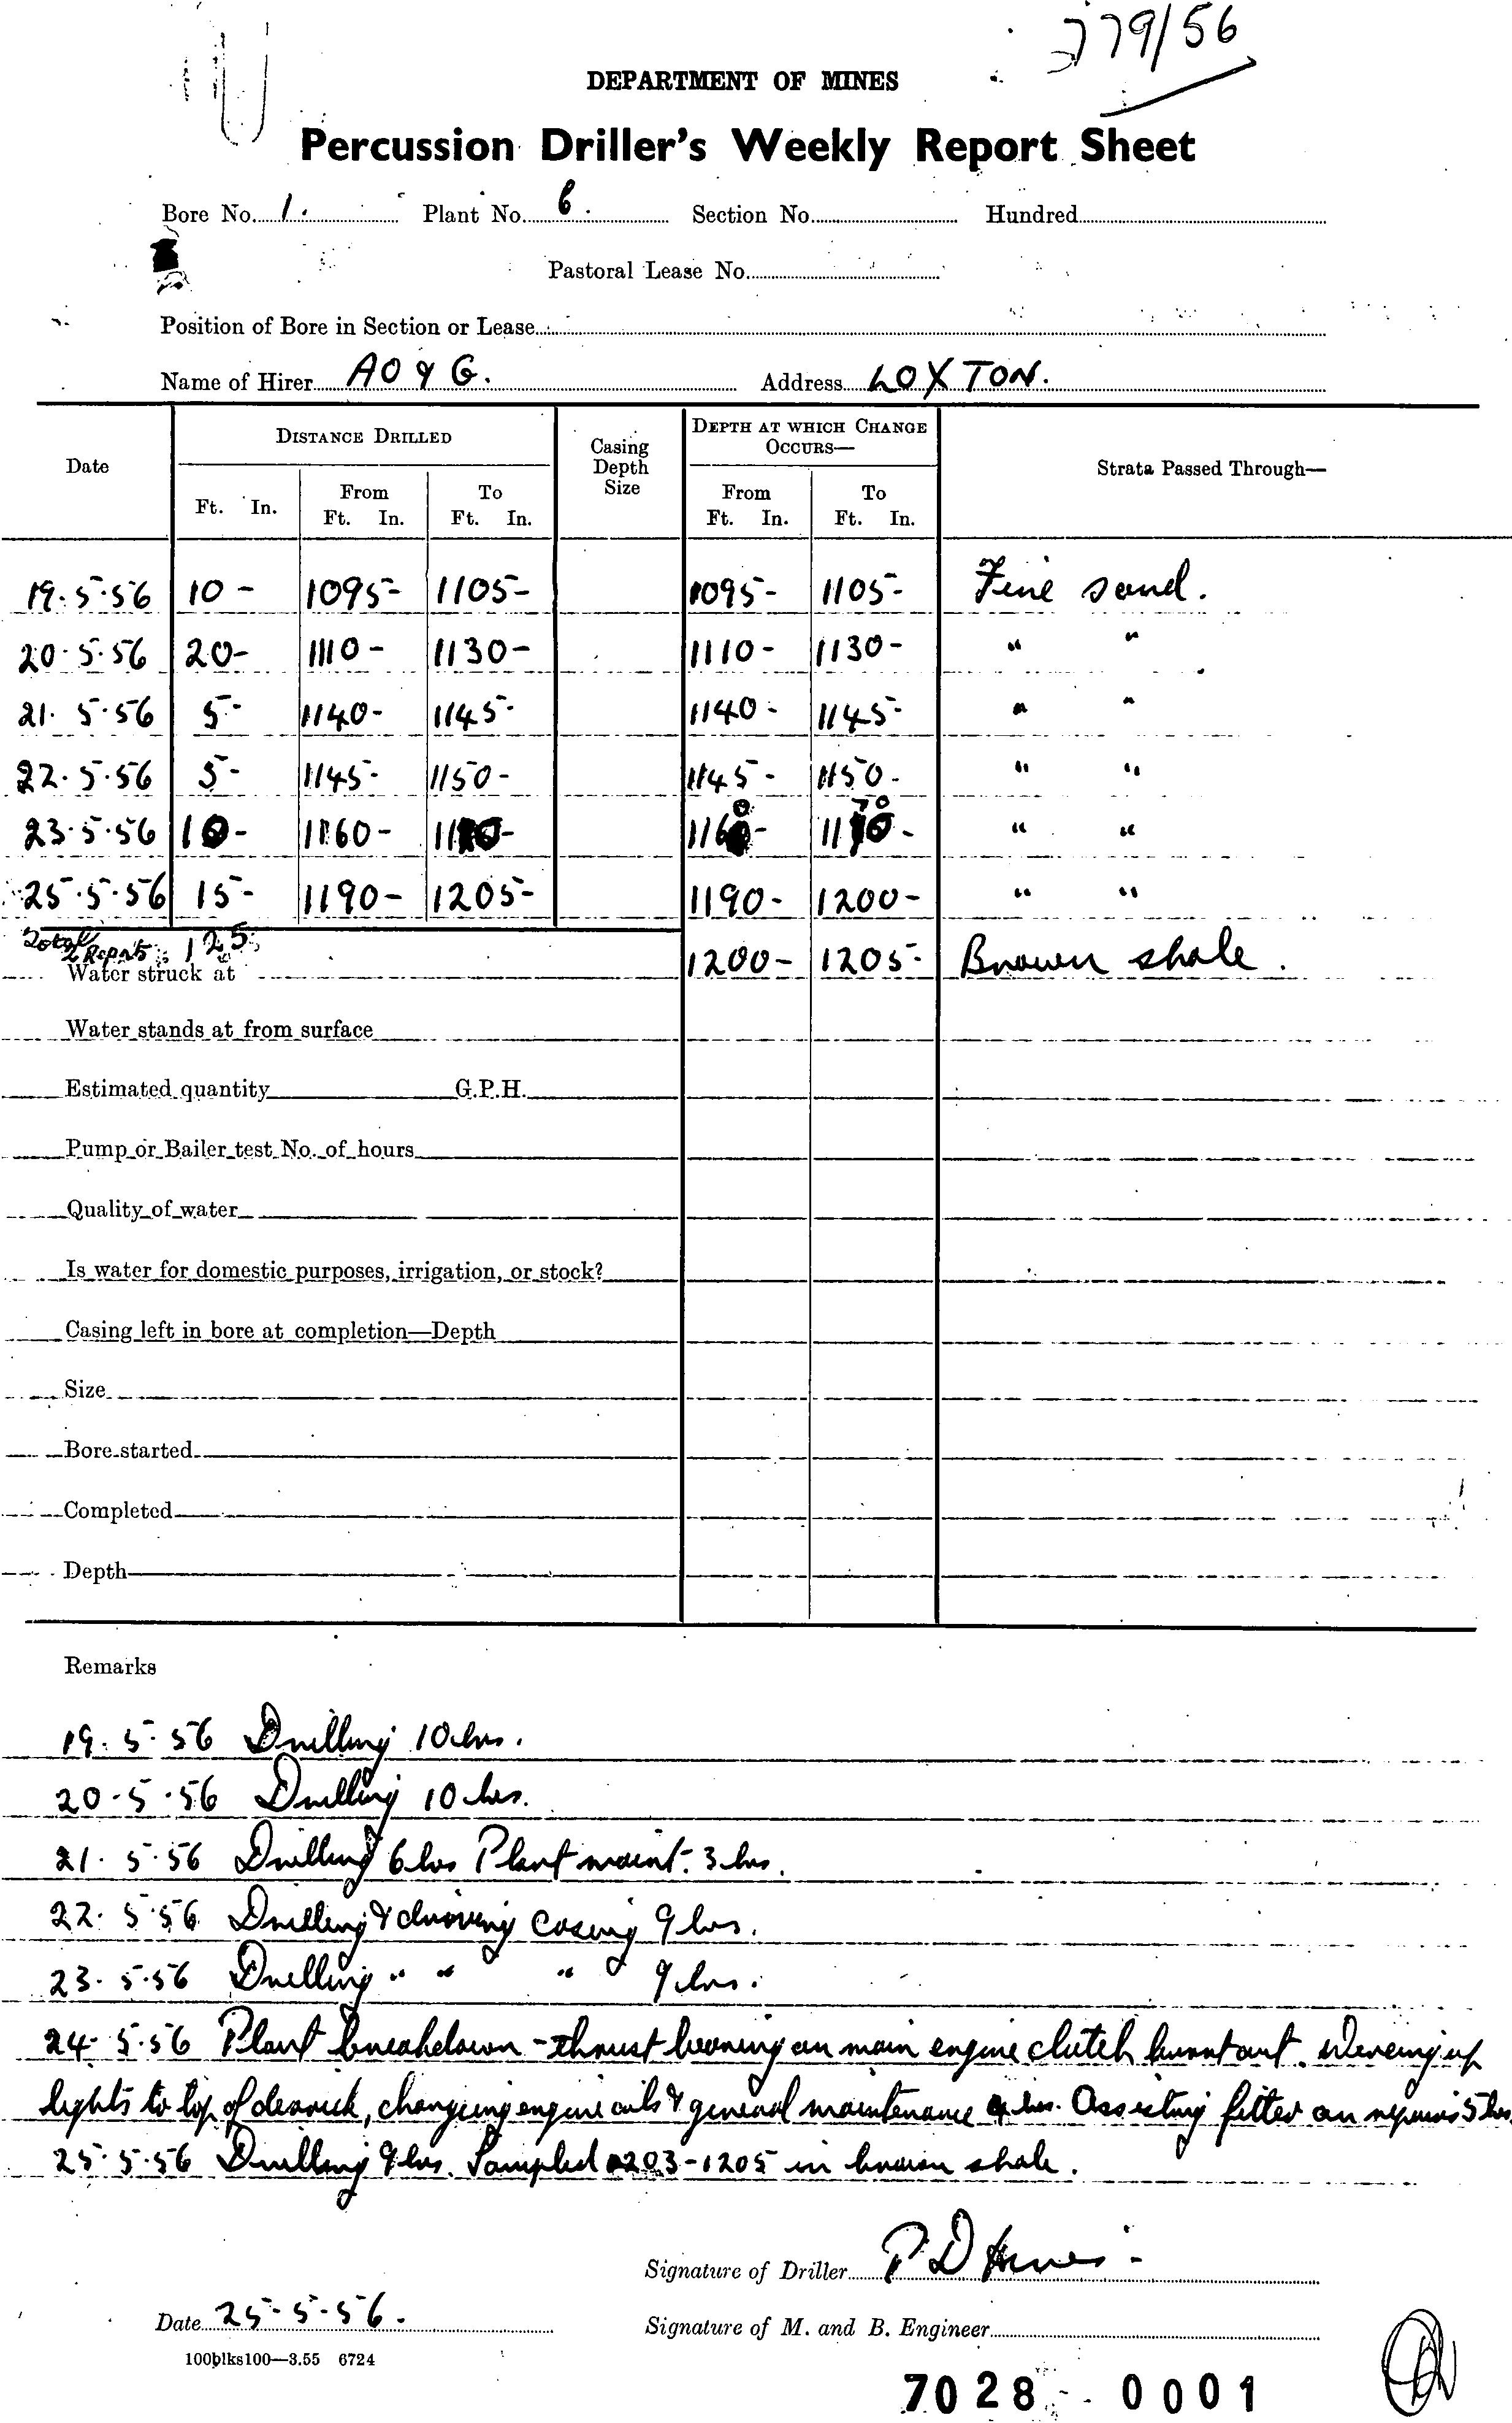 279/56
DEPARTMENT OF MINES
Percussion Driller's Weekly Report Sheet
Bore No. 1. Plant No. 6. Section No. Hundred
Pastoral Lease No.
Position of Bore in Section or Lease
Name of Hirer AO & G. Address LOXTON.
Date DISTANCE DRILLED Casing Depth Size DEPTH AT WHICH CHANGE OCCURS— Strata Passed Through—
Ft. In. From Ft. In. To Ft. In. From Ft. In. To Ft. In.
19.5.56 10- 1095- 1105- 1095- 1105- Fine sand.
20.5.56 20- 1110- 1130- 1110- 1130- " "
21.5.56 5- 1140- 1145- 1140- 1145- " "
22.5.56 5- 1145- 1150- 1145- 1150- " "
23.5.56 10- 1160- 1170- 1160- 1170- " "
25.5.56 15- 1190- 1205- 1190- 1200- " "
Total 2 Reports 125
Water struck at 1200- 1205- Brown shale.
Water stands at from surface
Estimated quantity G.P.H.
Pump or Bailer test No. of hours
Quality of water
Is water for domestic purposes, irrigation, or stock?
Casing left in bore at completion—Depth
Size
Bore started
Completed
Depth
Remarks
19.5.56 Drilling 10 hrs.
20.5.56 Drilling 10 hrs.
21.5.56 Drilling 6 hrs Plant maint. 3 hrs.
22.5.56 Drilling & driving casing 9 hrs.
23.5.56 Drilling " " " 9 hrs.
24.5.56 Plant breakdown - thrust bearing on main engine clutch burnt out. Wireing up
lights to top of derrick, changeing engine oils & general maintenance 4 hrs. Assisting fitter on repairs 5 hrs.
25.5.56 Drilling 9 hrs. Sampled 1203-1205 in brown shale.
Signature of Driller P D
Date 25-5-56. Signature of M. and B. Engineer
100blks100—3.55 6724
7028 - 0001